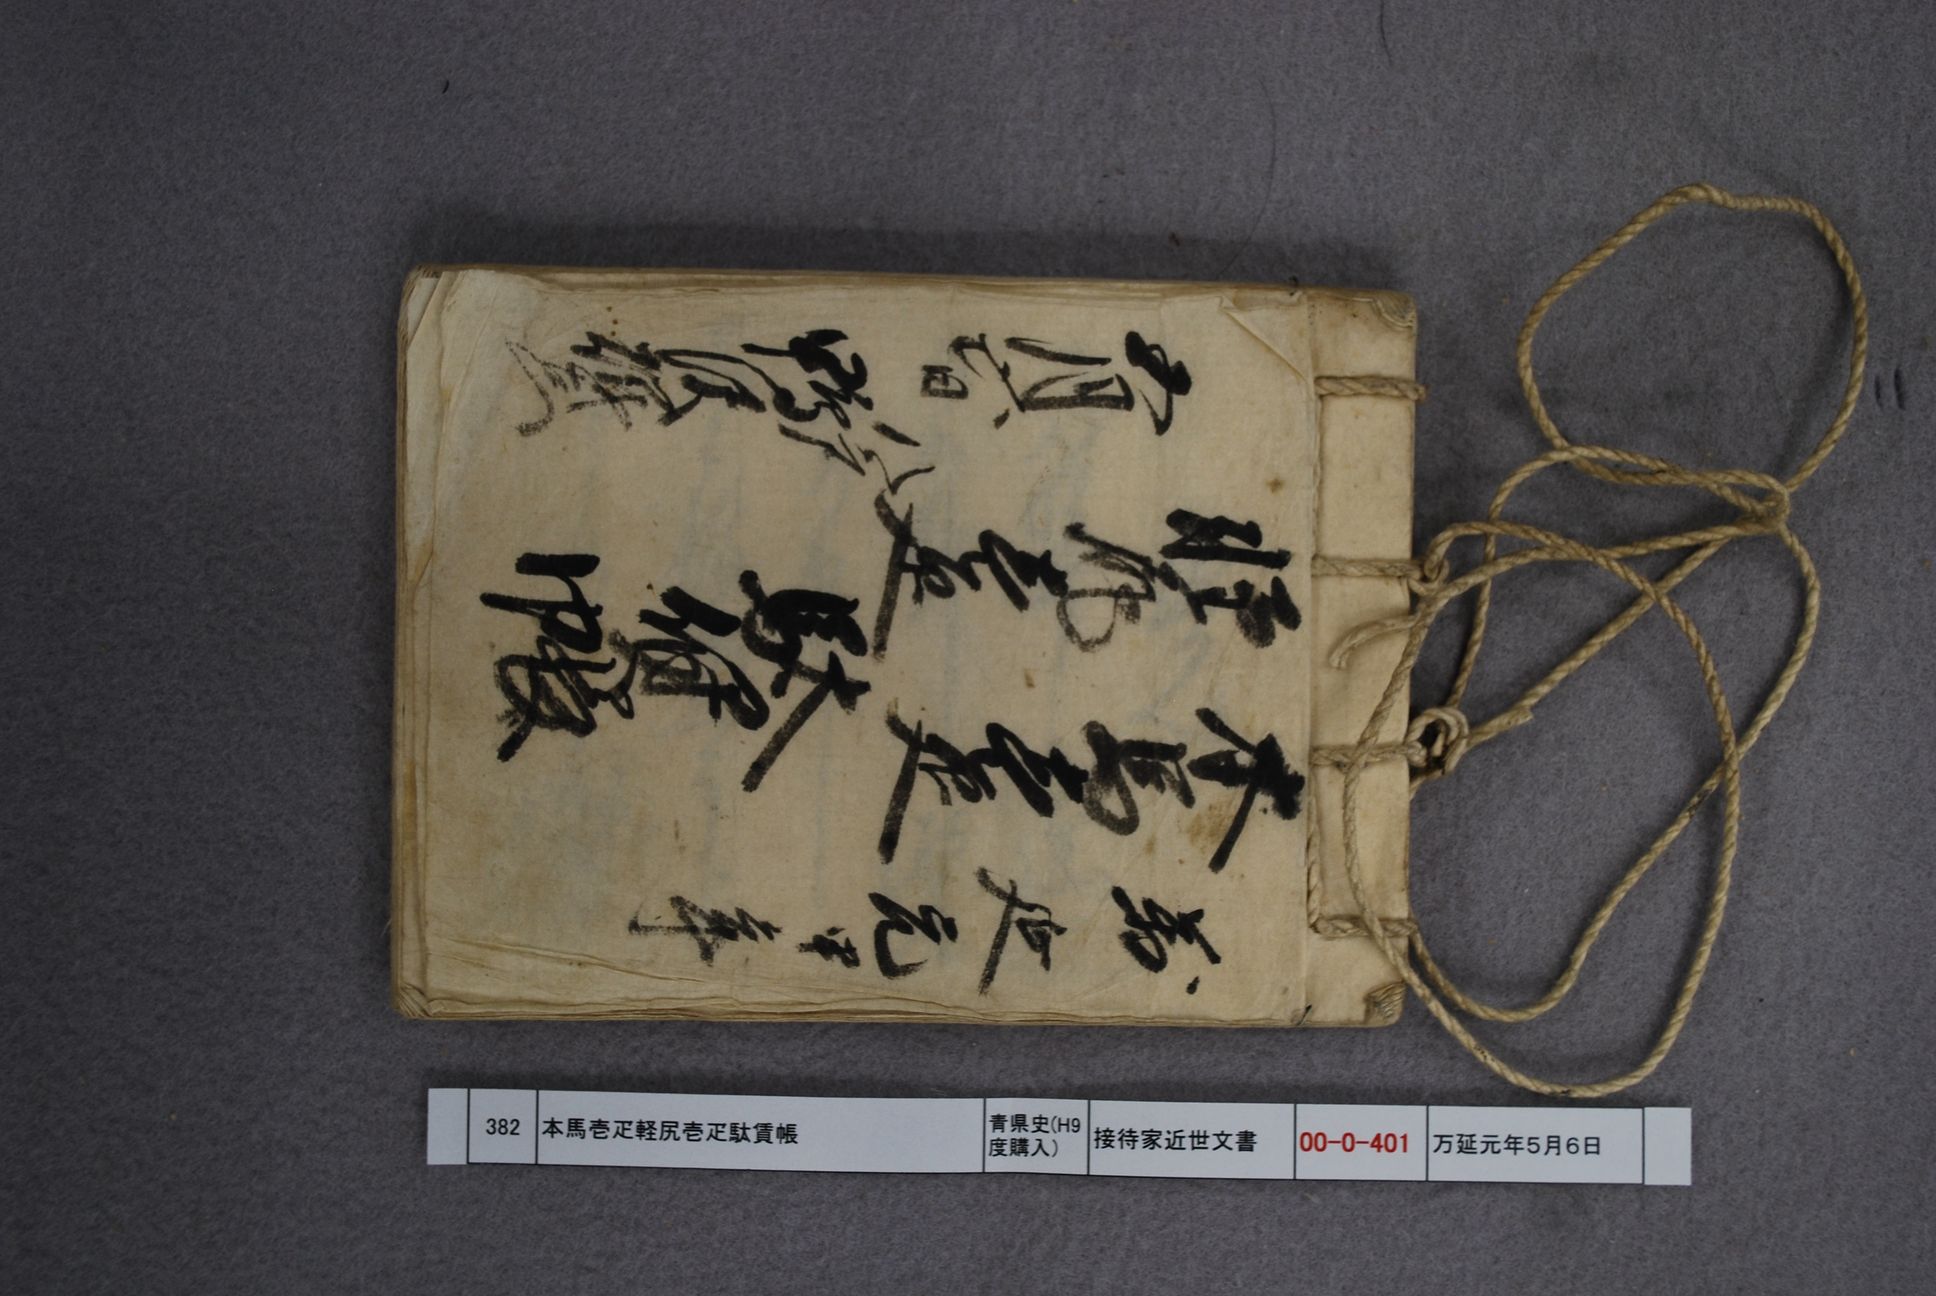 萬延元申年
本馬壱疋
軽尻壱疋
駄賃帳
五月六日
382 本馬壱疋軽尻壱疋駄賃帳 青県史(H9度購入) 接待家近世文書 00-0-401 万延元年5月6日